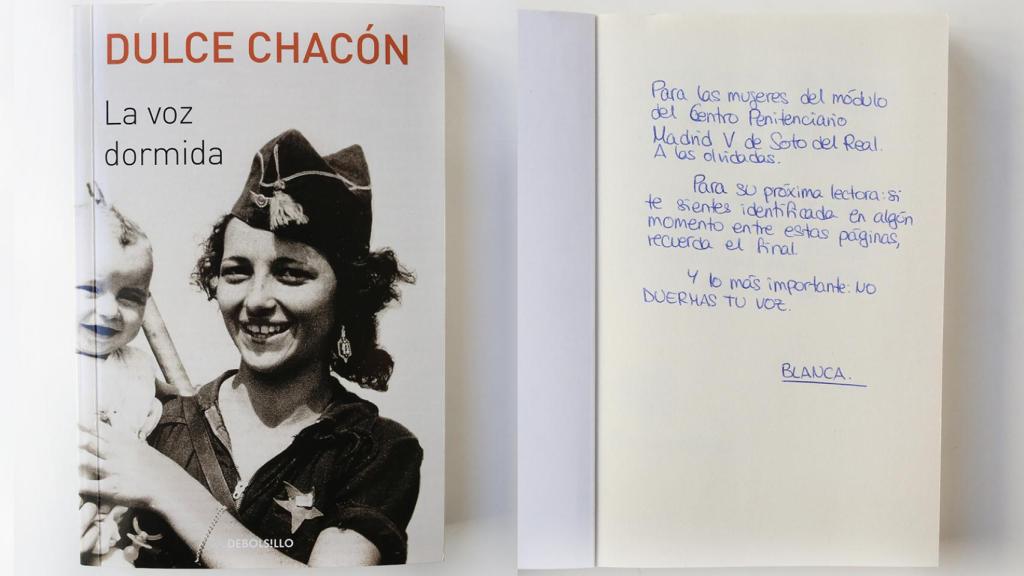 DULCE CHACÓN
La voz
dormida
DEBOLS!LLO
Para las mujeres del módulo
del Centro Penitenciario
Madrid V de Soto del Real.
A las olvidadas.
Para su próxima lectora: si
te sientes identificada en algún
momento entre estas páginas,
recuerda el final.
Y lo más importante: NO
DUERMAS TU VOZ.
BLANCA.